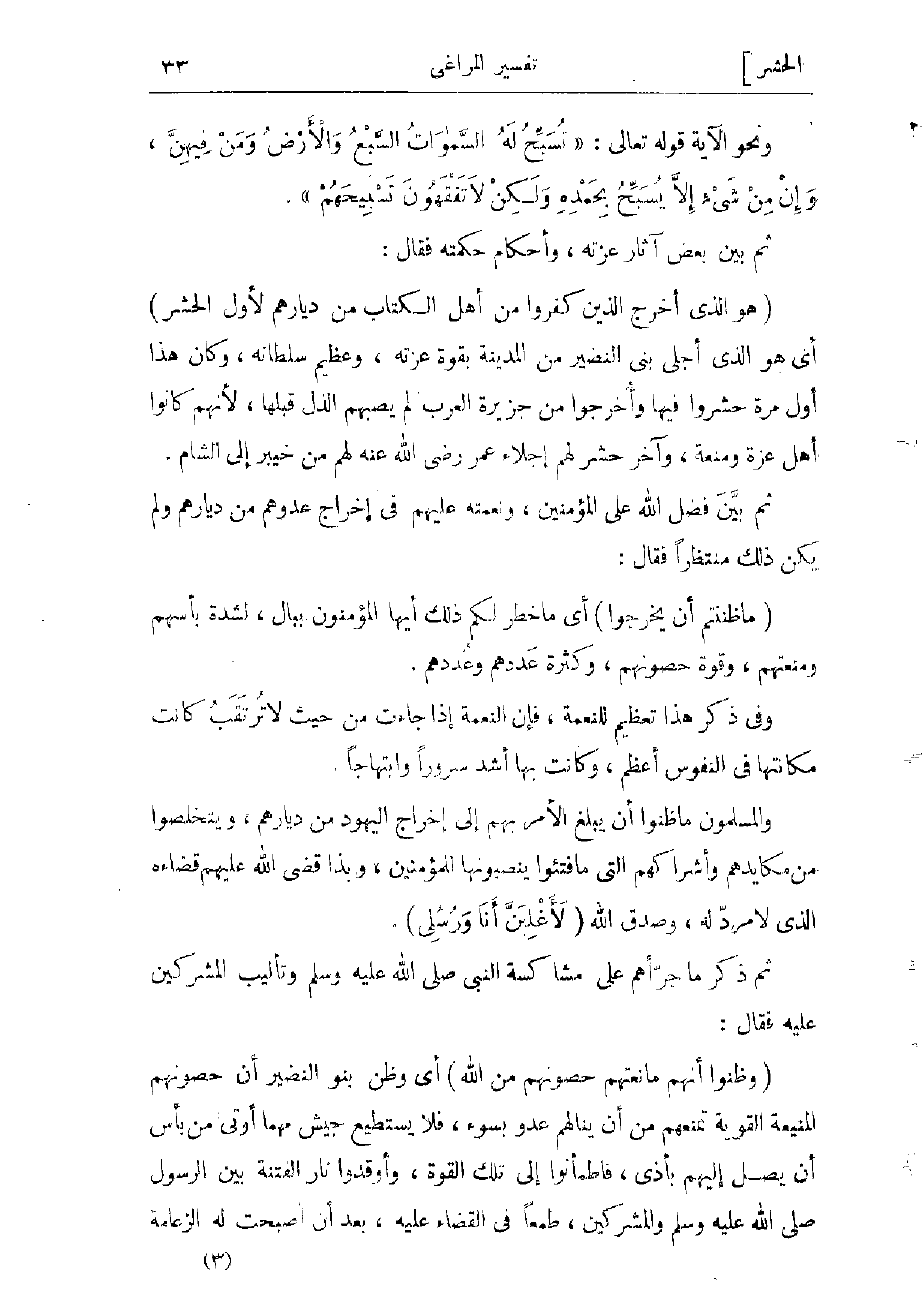 الحشر ] تفسير المراغى ٣٣
ونحو الآية قوله تعالى : « تُسَبِّحُ لَهُ السَّمٰوَاتُ السَّبْعُ وَالْأَرْضُ وَمَنْ فِيهِنَّ ،
وَإِنْ مِنْ شَىْءٍ إِلاَّ يُسَبِّحُ بِحَمْدِهِ وَلَـكِنْ لاَ تَفْقَهُونَ تَسْبِيحَهُمْ » .
ثم بين بعض آثار عزته ، وأحكام حكمته فقال :
( هو الذى أخرج الذين كفروا من أهل الـكتاب من ديارهم لأول الحشر )
أى هو الذى أجلى بنى النضير من المدينة بقوة عزته ، وعظيم سلطانه ، وكان هذا
أول مرة حشروا فيها وأُخرجوا من جزيرة العرب لم يصبهم الذل قبلها ، لأنهم كانوا
أهل عزة ومنعة ، وآخر حشر لهم إجلاء عمر رضى الله عنه لهم من خيبر إلى الشام .
ثم بيَّنَ فضل الله على المؤمنين ، ونعمته عليهم فى إخراج عدوهم من ديارهم ولم
يكن ذلك منتظراً فقال :
( ماظننتم أن يخرجوا ) أى ماخطر لكم ذلك أيها المؤمنون ببال ، لشدة بأسهم
ومنعتهم ، وقوة حصونهم ، وكثرة عَددهم وعُددهم .
وفى ذكر هذا تعظيم للنعمة ، فإن النعمة إذا جاءت من حيث لاتُرتَقَبُ كانت
مكانتها فى النفوس أعظم ، وكانت بها أشد سروراً وابتهاجاً .
والمسلمون ماظنوا أن يبلغ الأمر بهم إلى إخراج اليهود من ديارهم ، ويتخلصوا
من مكايدهم وأشراكهم التى مافتئوا ينصبونها للمؤمنين ، وبذا قضى الله عليهم قضاءه
الذى لامردّ له ، وصدق الله ( لَأَغْلِبَنَّ أَنَا وَرُسُلِى ) .
ثم ذكر ماجرّأهم على مشاكسة النبى صلى الله عليه وسلم وتأليب المشركين
عليه فقال :
( وظنوا أنهم مانعتهم حصونهم من الله ) أى وظن بنو النضير أن حصونهم
المنيعة القوية تمنعهم من أن ينالهم عدو بسوء ، فلا يستطيع جيش مهما أوتى من بأس
أن يصـل إليهم بأذى ، فاطمأنوا إلى تلك القوة ، وأوقدوا نار الفتنة بين الرسول
صلى الله عليه وسلم والمشركين ، طمعاً فى القضاء عليه ، بعد أن أصبحت له الزعامة
(٣)